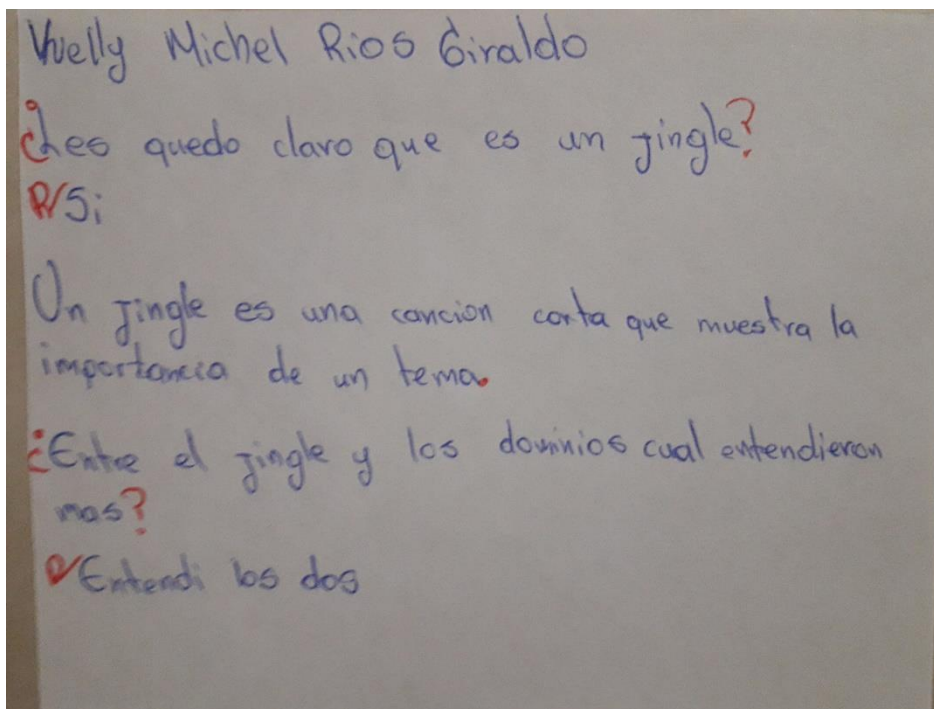 Vuelly Michel Rios Giraldo
¿Les quedo claro que es un jingle?
R/Si
Un jingle es una cancion corta que muestra la
importancia de un tema.
¿Entre el jingle y los dominios cual entendieron
mas?
R/Entendi los dos